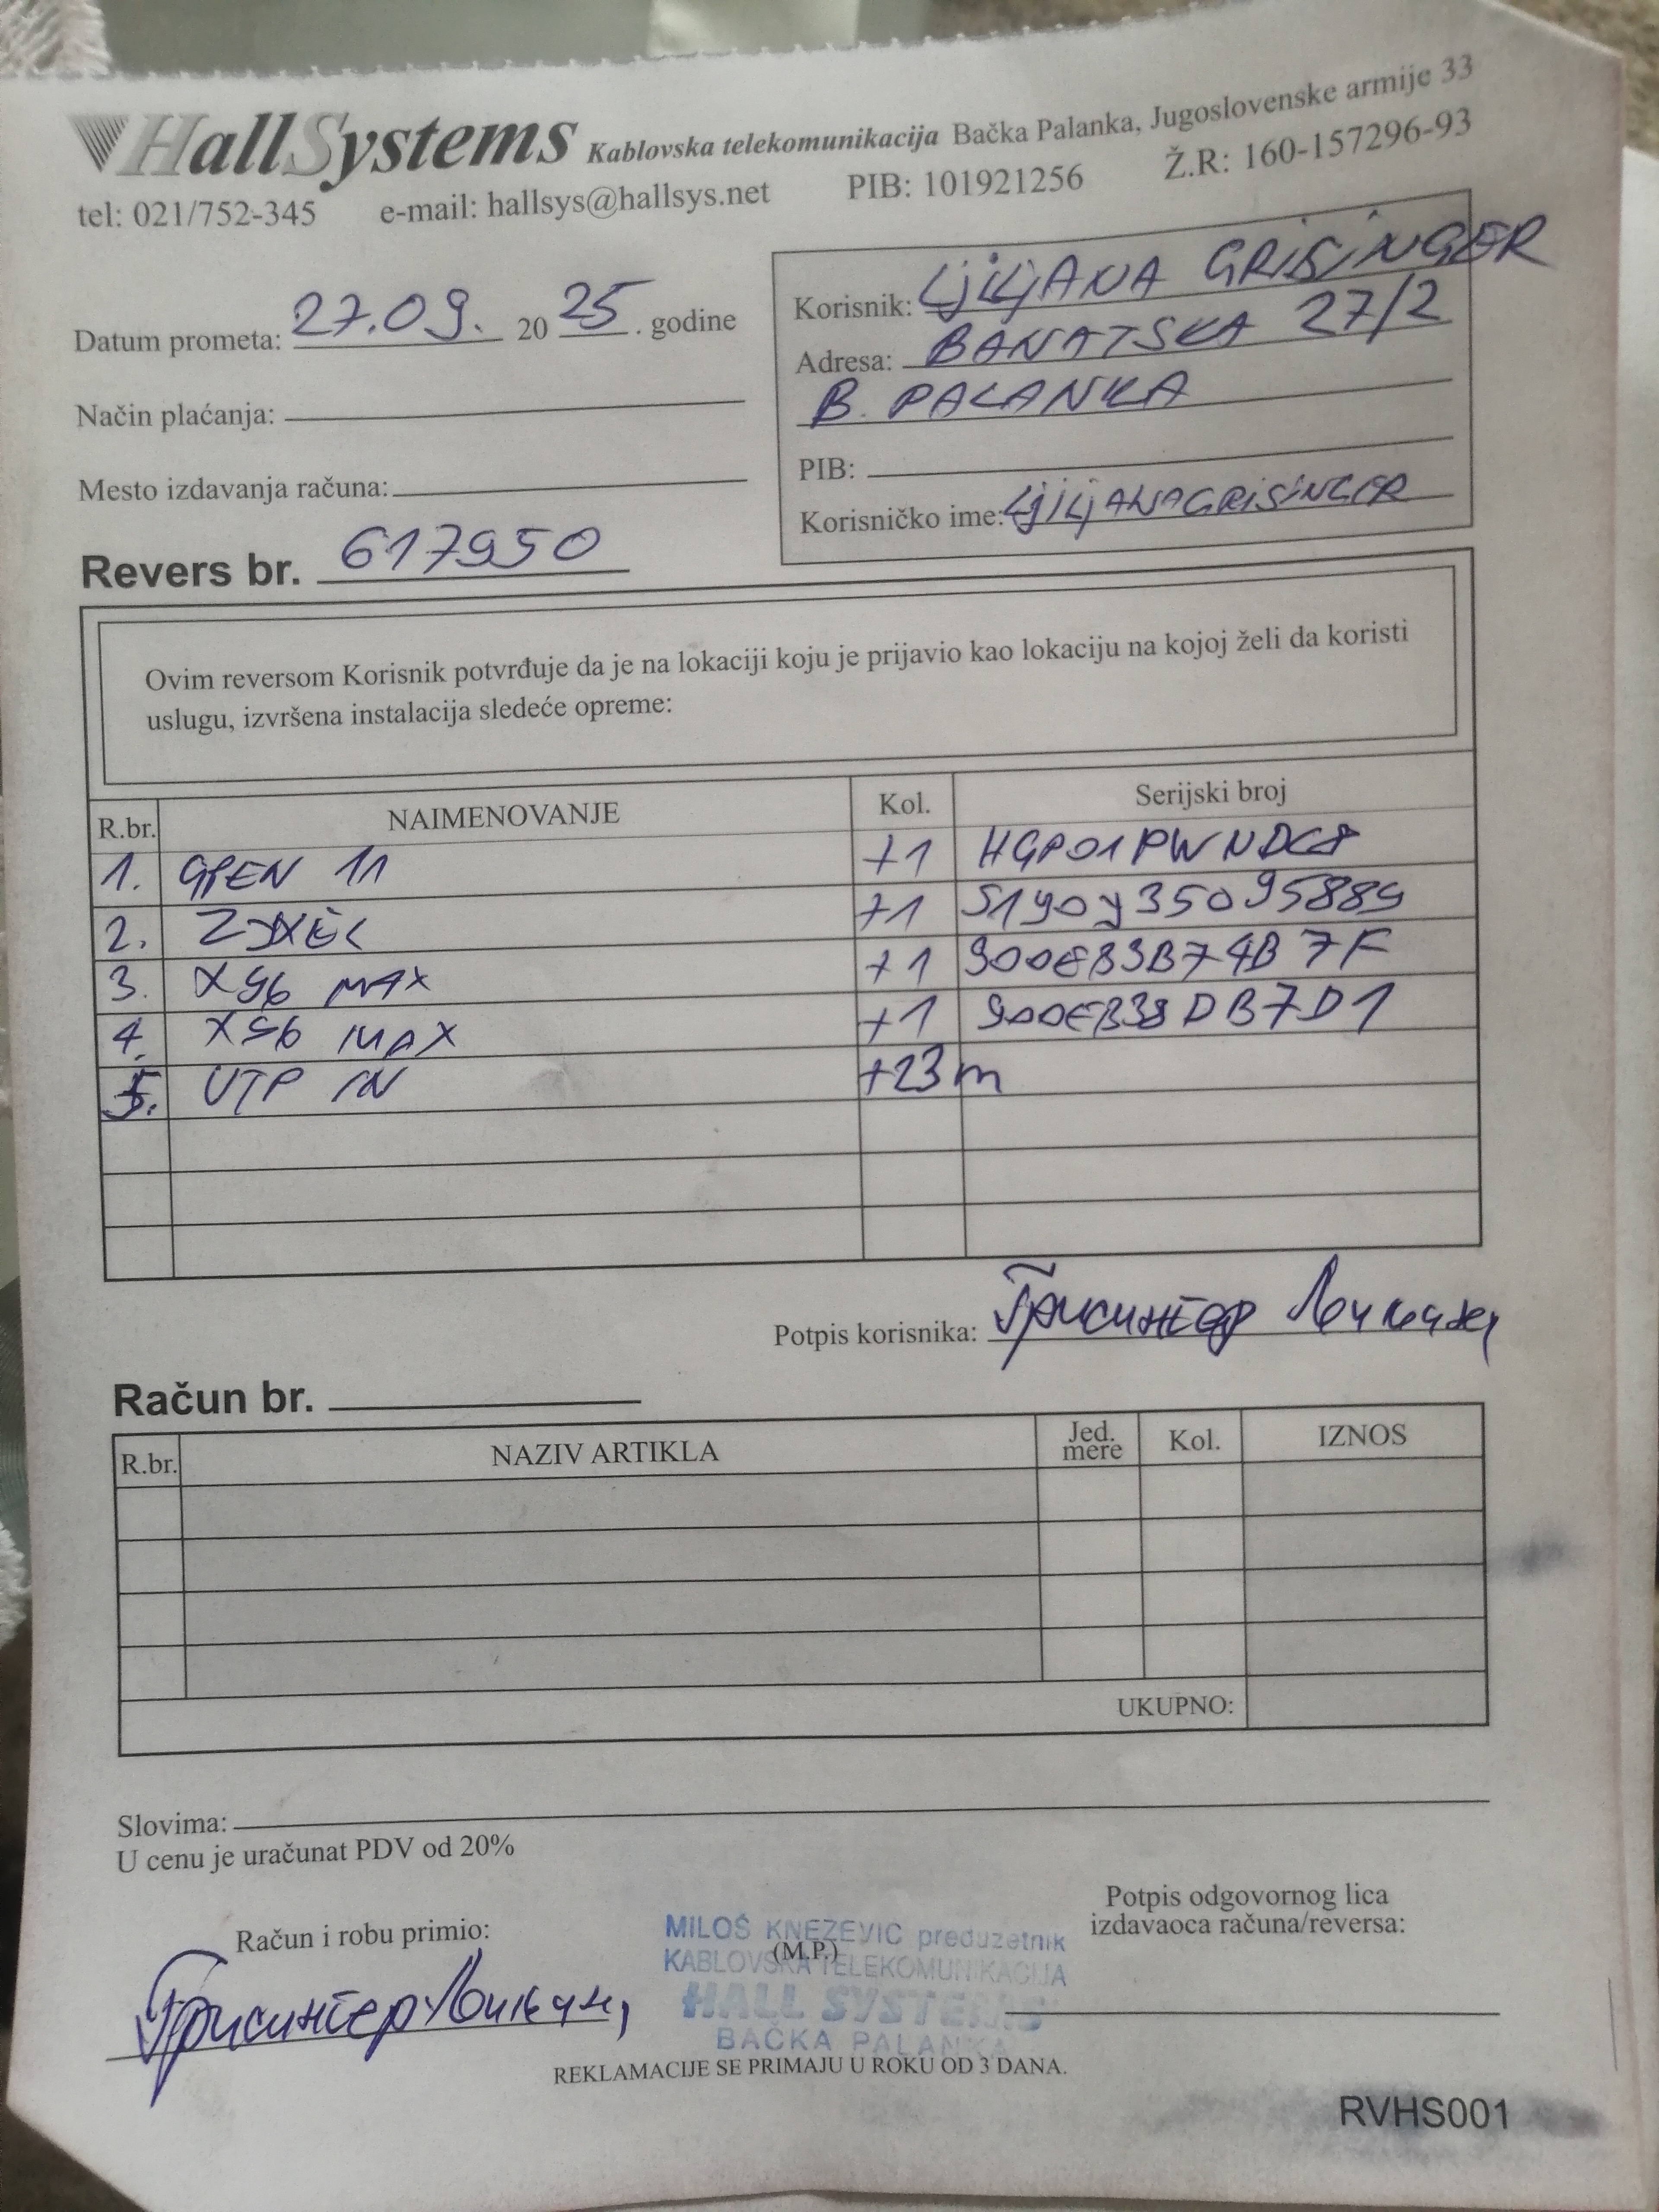 HallSystems Kablovska telekomunikacija Bačka Palanka, Jugoslovenske armije 33
tel: 021/752-345 e-mail: hallsys@hallsys.net PIB: 101921256 Ž.R: 160-157296-93
Datum prometa: 27.09. 2025. godine
Način plaćanja:
Mesto izdavanja računa:
Korisnik: LJILJANA GRISINGER
Adresa: BANATSKA 27/2
B. PALANKA
PIB:
Korisničko ime: LJILJANAGRISINGER
Revers br. 617950
Ovim reversom Korisnik potvrđuje da je na lokaciji koju je prijavio kao lokaciju na kojoj želi da koristi
uslugu, izvršena instalacija sledeće opreme:
R.br. NAIMENOVANJE Kol. Serijski broj
1. +1
2. +1 S190Y35095889
3. X96 MAX +1 900EB3B74B7F
4. X96 MAX +1 900EB38DB7D1
5. UTP IN +23m
Potpis korisnika: Грисингер
Račun br.
R.br. NAZIV ARTIKLA Jed. mere Kol. IZNOS
UKUPNO:
Slovima:
U cenu je uračunat PDV od 20%
Račun i robu primio:
Грисингер
MILOŠ KNEZEVIC preduzetnik
(M.P.)
KABLOVSKA TELEKOMUNIKACIJA
HALL SYSTEMS
BAČKA PALANKA
Potpis odgovornog lica
izdavaoca računa/reversa:
REKLAMACIJE SE PRIMAJU U ROKU OD 3 DANA.
RVHS001